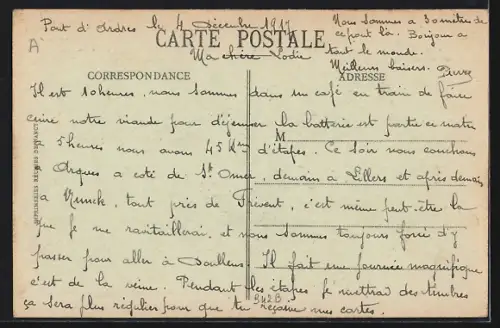 A
Pont d'Ardres le 4 Décembre 1917
Nous sommes a 30 mètres de
ce pont là. Bonjour a
tout le monde.
Meilleurs baisers.
CARTE POSTALE
Ma chère
CORRESPONDANCE
ADRESSE
Il est 10 heures, nous sommes dans un café en train de faire
cuire notre viande pour déjeuner la batterie est partie ce matin
M
a 5 heures nous avons 45 Km d'étapes. Ce soir nous couchons
Arques a coté de St Omer, demain a Lillers et après demain
a, tout près de Frévent, c'est même peut-être la
que je me ravitaillerai, et nous sommes toujours forcé d'y
passer pour aller à Doullens. Il fait une journée magnifique
c'est de la veine. Pendant les étapes je mettrai des timbres
ça sera plus régulier pour que tu reçoive mes cartes.
IMPRIMERIES RÉUNIES DE NANCY